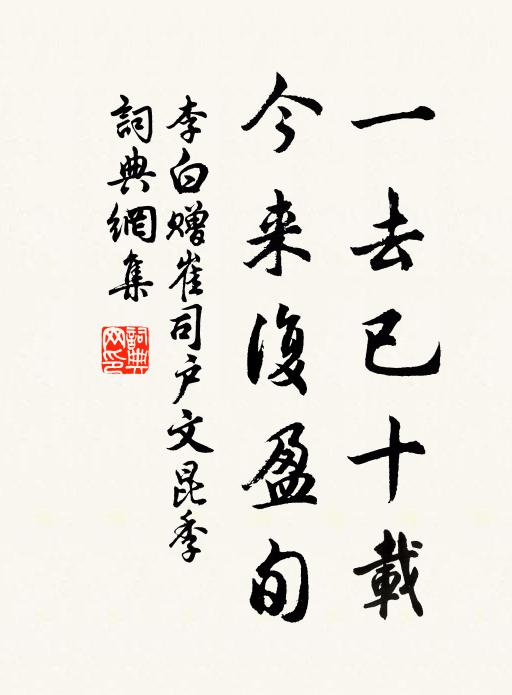 一去已十載
今来復盈旬
李白赠崔司户文昆季
詞典網集
詞典網印